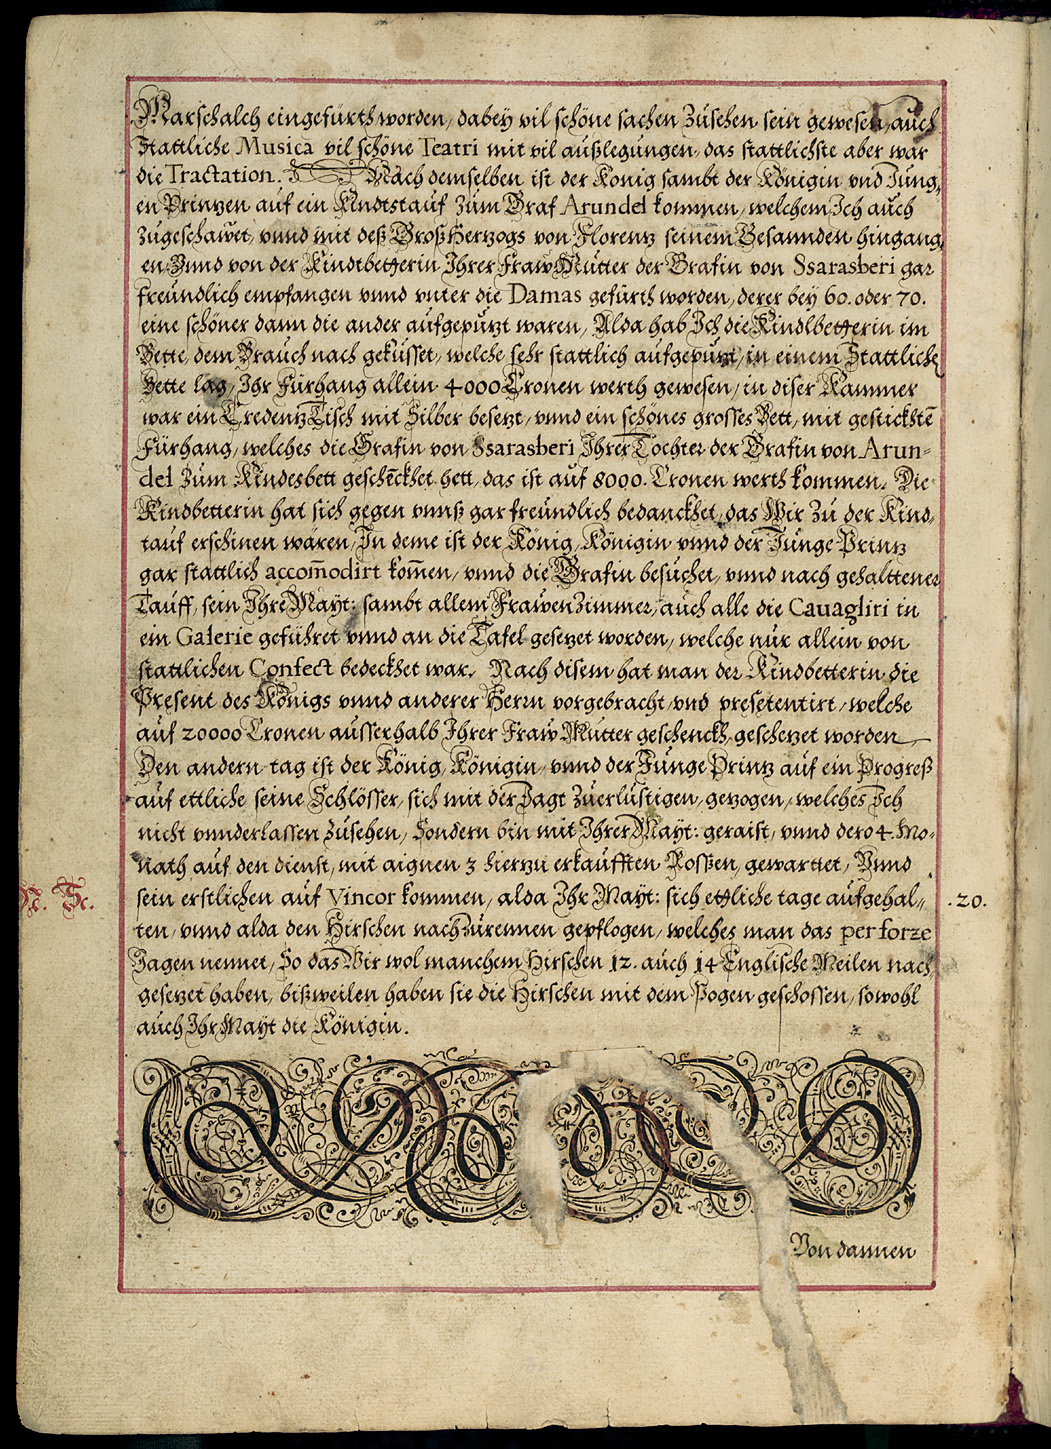 Marschalch eingefürth worden, dabey vil schöne sachen Zúsehen sein gewesen, auch
Stattliche Musica vil schöne Teatri mit vil außlegúngen, das stattlichste aber war
die Tractation. Nach demselben ist der Konig sambt der Königin vnd Jung,,
en Prinzen auf ein Kindtstauf Zúm Graf Arundel kommen, welchem Ich auch
Zúgeschawet, vnnd mit deß Groß Herzogs von Florentz seinem Gesannden hingang,,
en, Vnnd von der Kindtbetterin Ihrer Fraw Mútter der Grafin von Ssarasberi gar
freúndlich empfangen vnnd vnter die Damas gefúrth worden, derer bey 60. oder 70.
eine schöner dann die ander aúfgepúzt waren, Alda hab Ich die Kindlbetterin im
Bette, dem Braúch nach geküsset, welche sehr stattlich aúfgepúzt, in einem Stattliche
Bette lag, Ihr Fürhang allein 4000 Cronen werth gewesen, in diser Kammer
war ein Credentz Tisch mit Silber besezt, vnnd ein schönes grosses Bett, mit gestickhtē
Fürhang, welches die Grafin von Ssarasberi Ihrer Tochter der Grafin von Arun-
del Zúm Kindesbett geschēckhet hett, das ist aúf 8000. Cronen werth kommen. Die
Kindbetterin hat sich gegen vnnß gar freúndlich bedanckhet, das Wir Zú der Kind,
tauf erschinen wären, In deme ist der König, Königin vnnd der Júnge Printz
gar stattlich accom̄odirt kom̄en, vnnd die Grafin besúchet, vnnd nach gehalttener
Taúff, sein Ihre Mayt: sambt allem Fraẅen Zimmer, aúch alle die Cauagliri in
ein Galerie geführet vnnd an die Tafel gesezet worden, welche núr allein von
stattlichen Confect bedeckhet war. Nach disem hat man der Kindbetterin die
Present des Königs vnnd anderer Herrn vorgebracht, vnd presetentirt, welche
aúf 20000 Cronen aússerhalb Ihrer Fraw Mútter geschenckh, geschezet worden
Den andern tag ist der König, Königin, vnnd der Júnge Printz aúf ein Progreß
aúf ettliche seine Schlösser, sich mit der Jagt Zúerlústigen, gezogen, welches Ich
nicht vnnderlassen Zúsehen, Sondern bin mit Ihrer Mayt: geraist, vnnd dero 4. Mo-
nath aúf den dienst, mit aignen 3 hierzú erkaúfften Roßßen, gewarttet, Vnnd
sein erstlichen aúf Vincor kommen, alda Ihr Mayt: sich ettliche tage aúfgehal,,
.20.
ten, vnnd alda den Hirschen nach Zúrennen gepflogen, welches man das per forze
Jagen nennet, So das Wir wol manchem Hirschen 12. aúch 14 Englische Meilen nach
gesezet haben, bißweilen haben sie die Hirschen mit dem Pogen geschossen, sowohl
aúch Ihr Mayt die Königin.
Von dannen